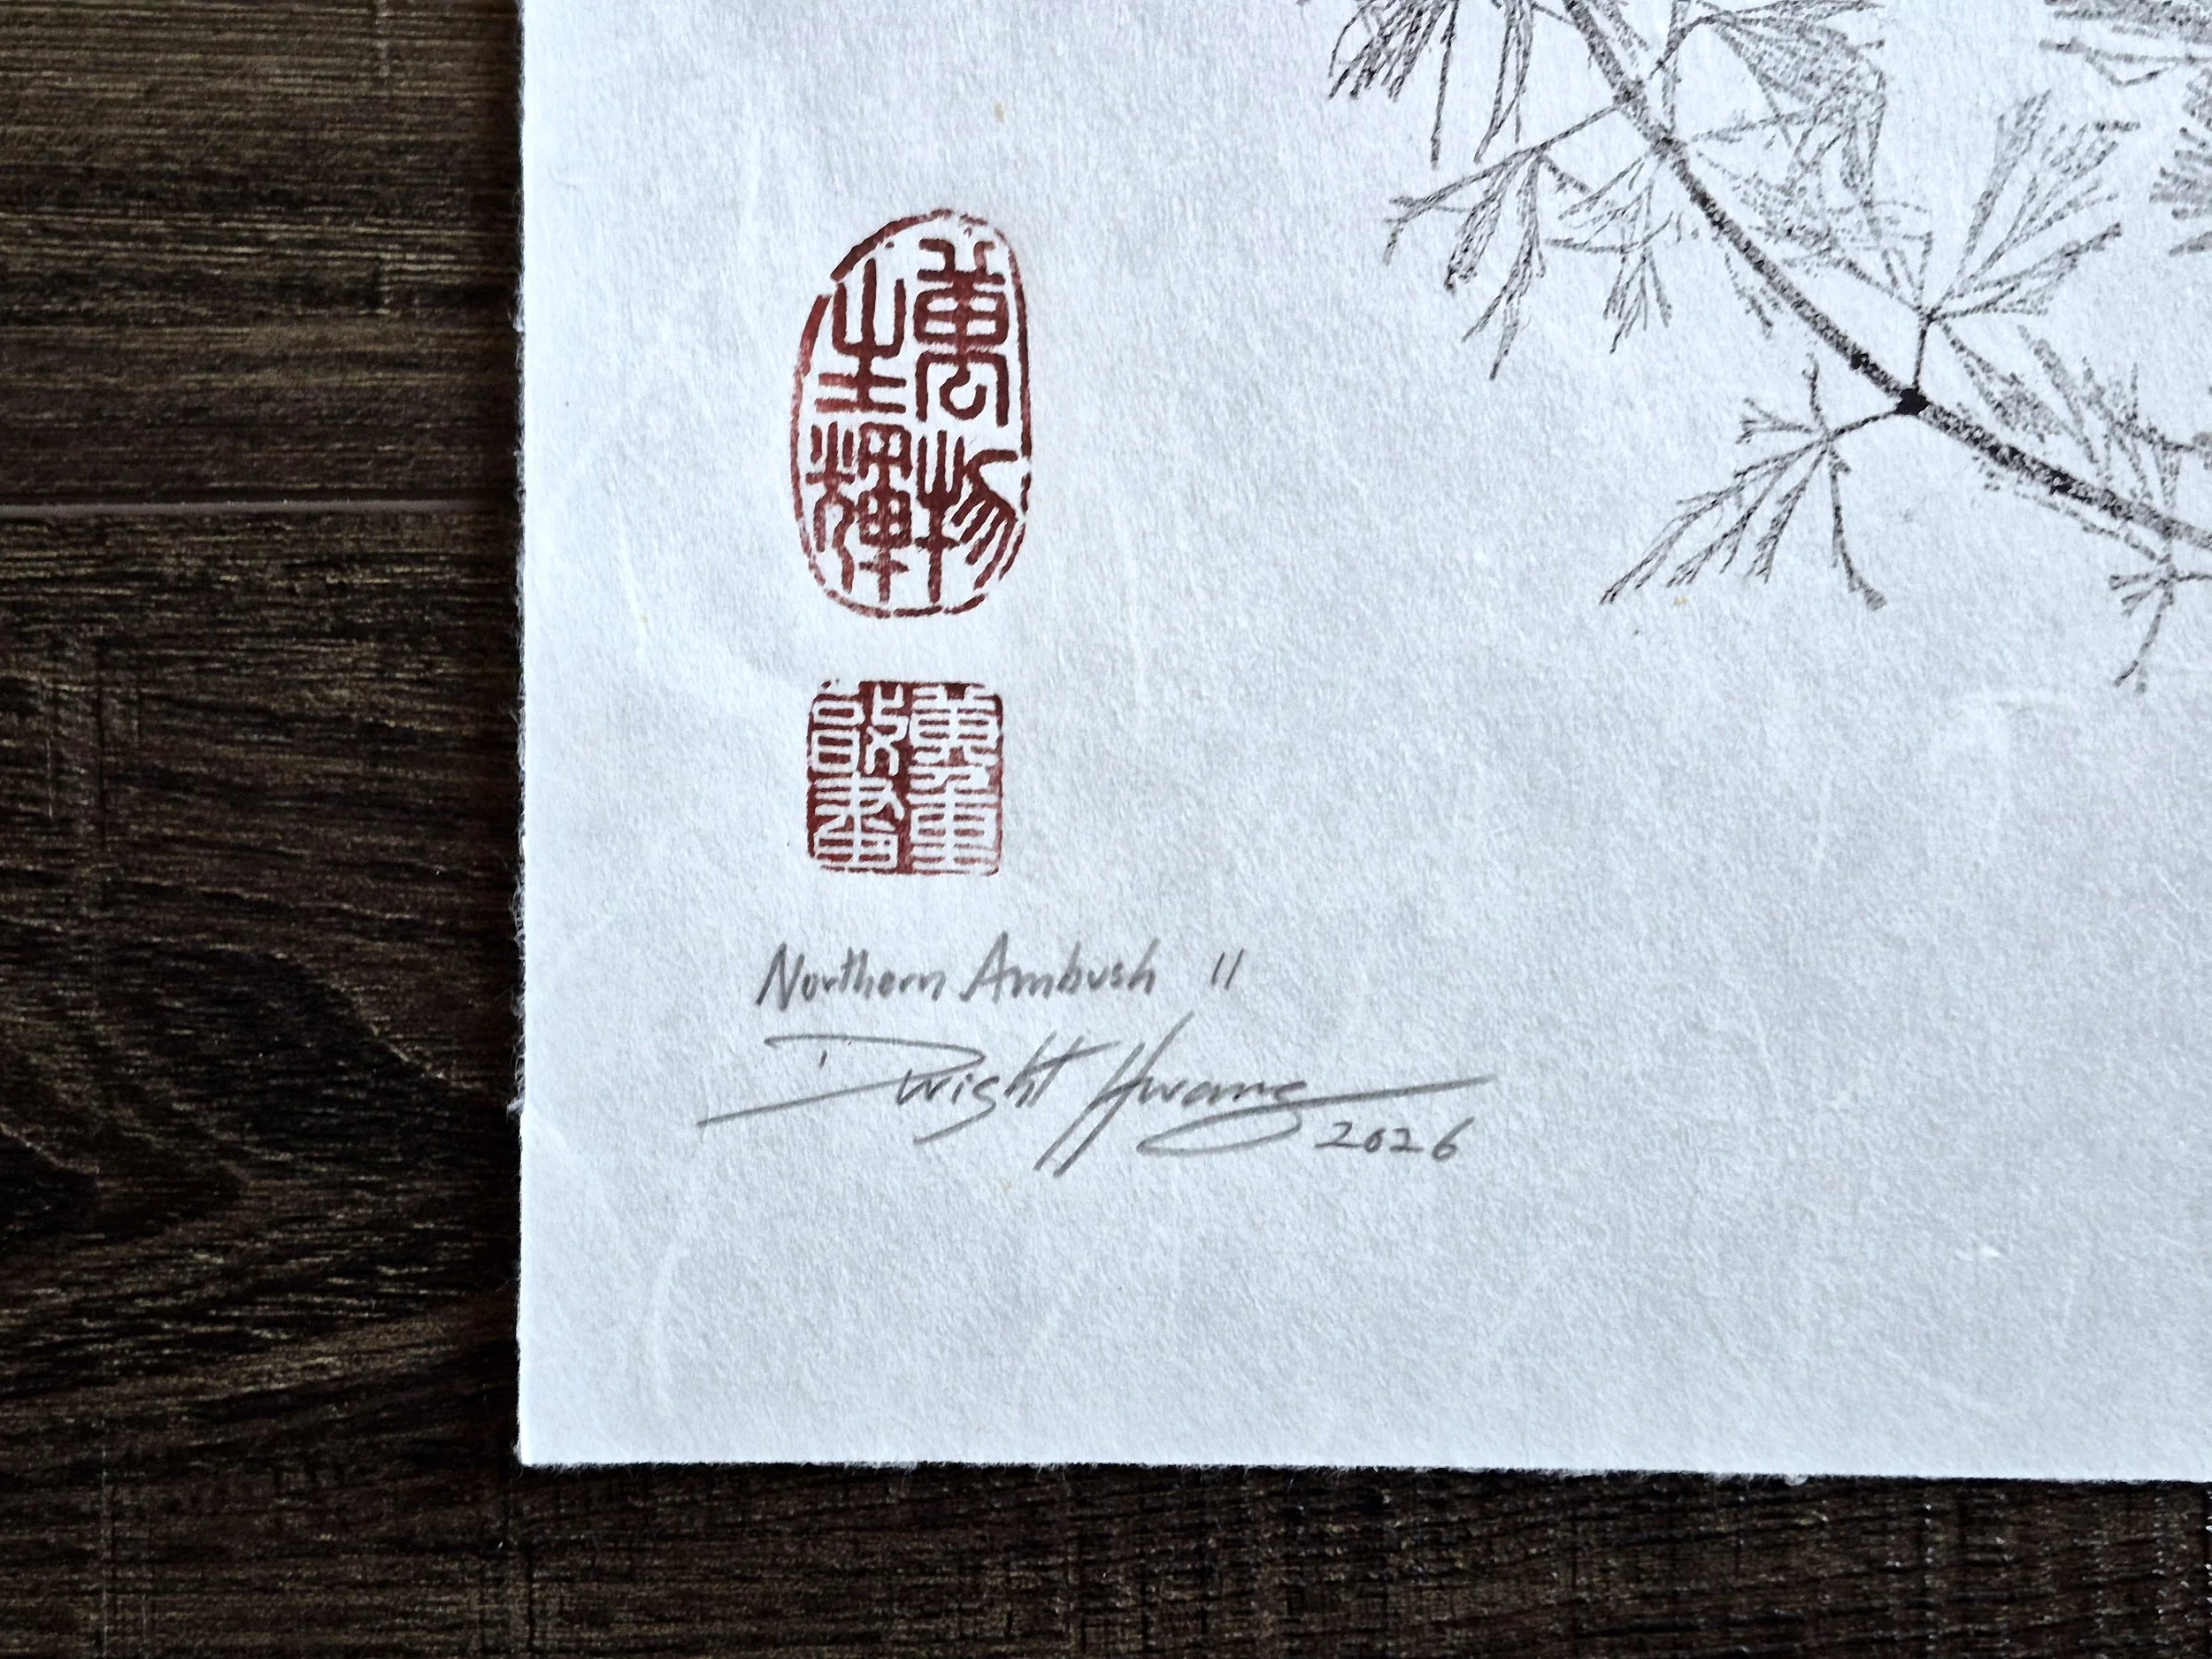 萬物
生輝
Northern Ambush II
Dwight Hwang
2026